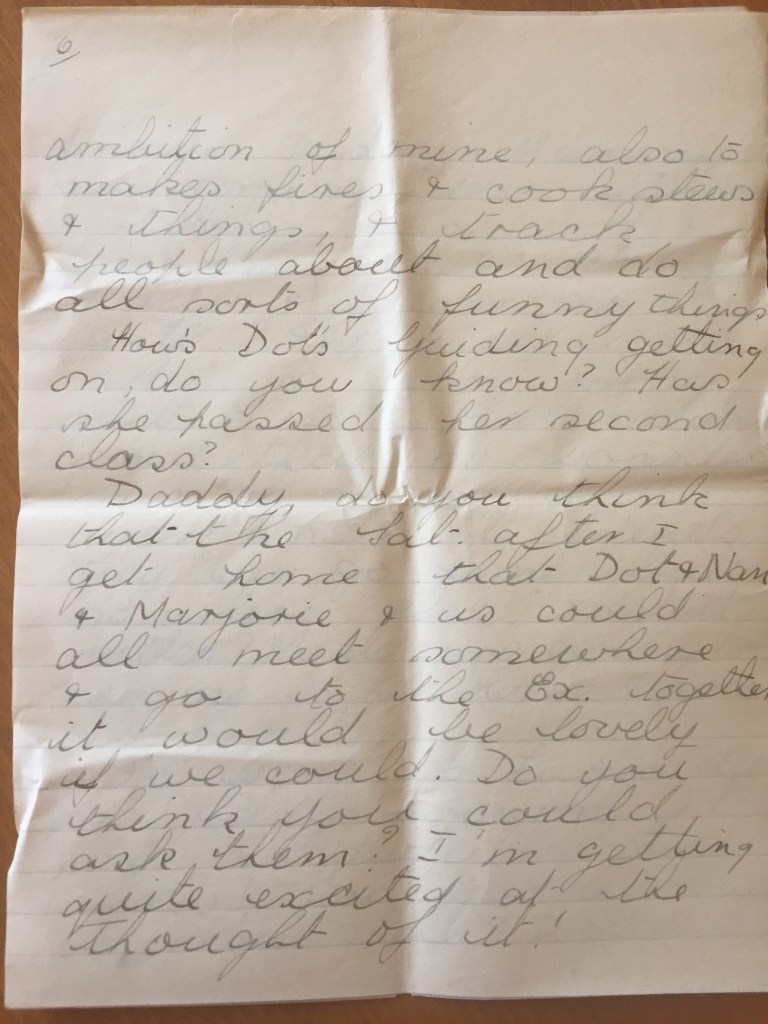 6
ambition of mine, also to
makes fires & cook stews
& things, & track
people about and do
all sorts of funny things
How's Dot's Guiding getting
on, do you know? Has
she passed her second
class?
Daddy, do you think
that the Sat. after I
get home that Dot & Nan
& Marjorie & us could
all meet somewhere
& go to the Ex. together
it would be lovely
if we could. Do you
think you could
ask them? I'm getting
quite excited at the
thought of it!